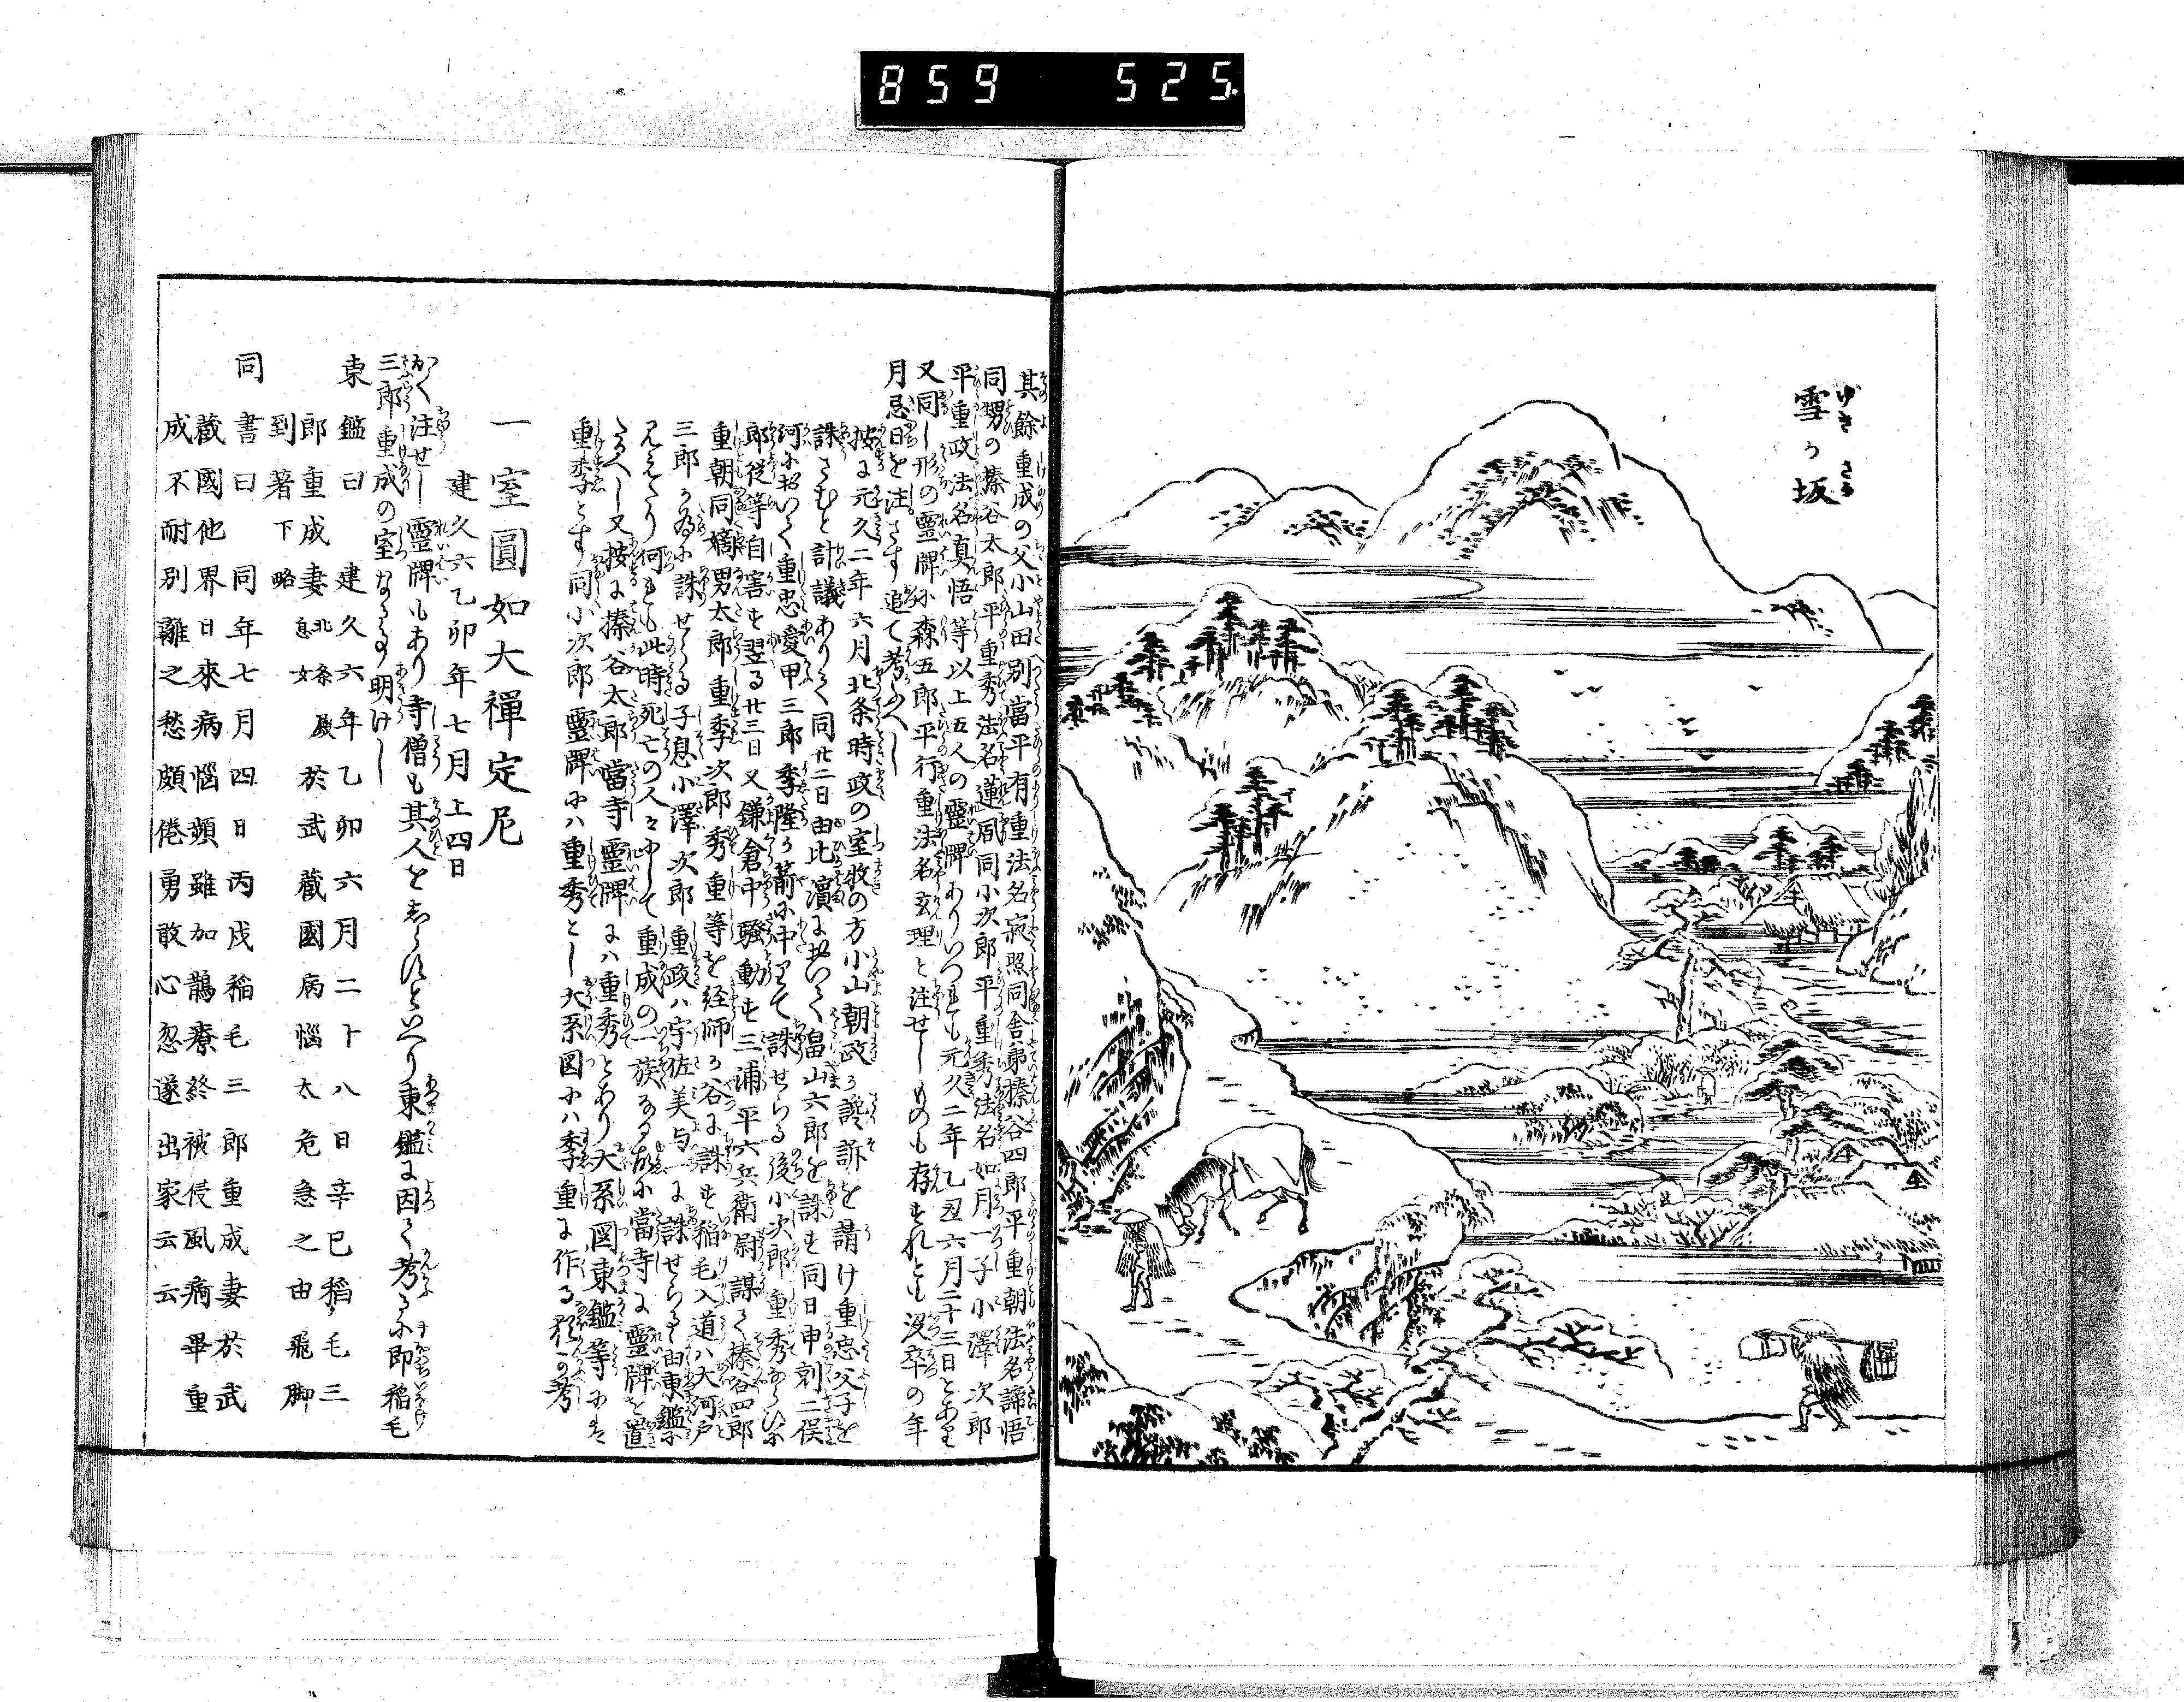 859 525
雪か坂
其餘重成の父小山田別當平有重法名寂照同舎弟榛谷四郎平重朝法名諦悟
同甥の榛谷太郎平重秀法名蓮同同小次郎平重秀法名如月一子小澤次郎
平重政法名真悟等以上五人の靈牌ありいつれも元久二年乙丑六月二十三日とあり
又同し形の靈牌に森五郎平行重法名玄理と注せしものも存すれとも没卒の年
月忌日を注さす追て考ふへし
按に元久二年六月北条時政の室牧の方小山朝政か讒訴を請け重忠父子を
誅さむと計議ありて同廿二日由比濵において畠山六郎を誅す同日申剋二俣
河において重忠愛甲三郎季隆か箭に中りて誅せらる後小次郎重秀ならひに
郎従等自害す翌る廿三日又鎌倉中騒動す三浦平六兵衛尉謀て榛谷四郎
重朝同嫡男太郎重季次郎秀重等を経師か谷に誅す稲毛入道ハ大河戸
三郎か為に誅せらる子息小澤次郎重政ハ宇佐美与一に誅せらるゝ由東鑑に
見えたり何れも此時死亡の人々にして重成の一族なる故に當寺に靈牌を置
たるへし又按に榛谷太郎當寺靈牌にハ重秀とあり大系図東鑑等にハ
重季とす同小次郎靈牌にハ重秀とし大系図にハ季重に作る猶可考
一室圓如大禪定尼
建久六乙卯年七月上四日
かく注せし靈牌もあり寺僧も其人をしらすといへり東鑑に因て考るに即稲毛
三郎重成の室なる事明けし
東鑑曰建久六年乙卯六月二十八日辛巳稲毛三
郎重成妻北条殿息女於武藏國病惱太危急之由飛脚
到著下略
同書曰同年七月四日丙戌稲毛三郎重成妻於武
藏國他界日來病惱頻雖加鵲療終被侵風痾畢重
成不耐別離之愁頗倦勇敢心忽遂出家云云